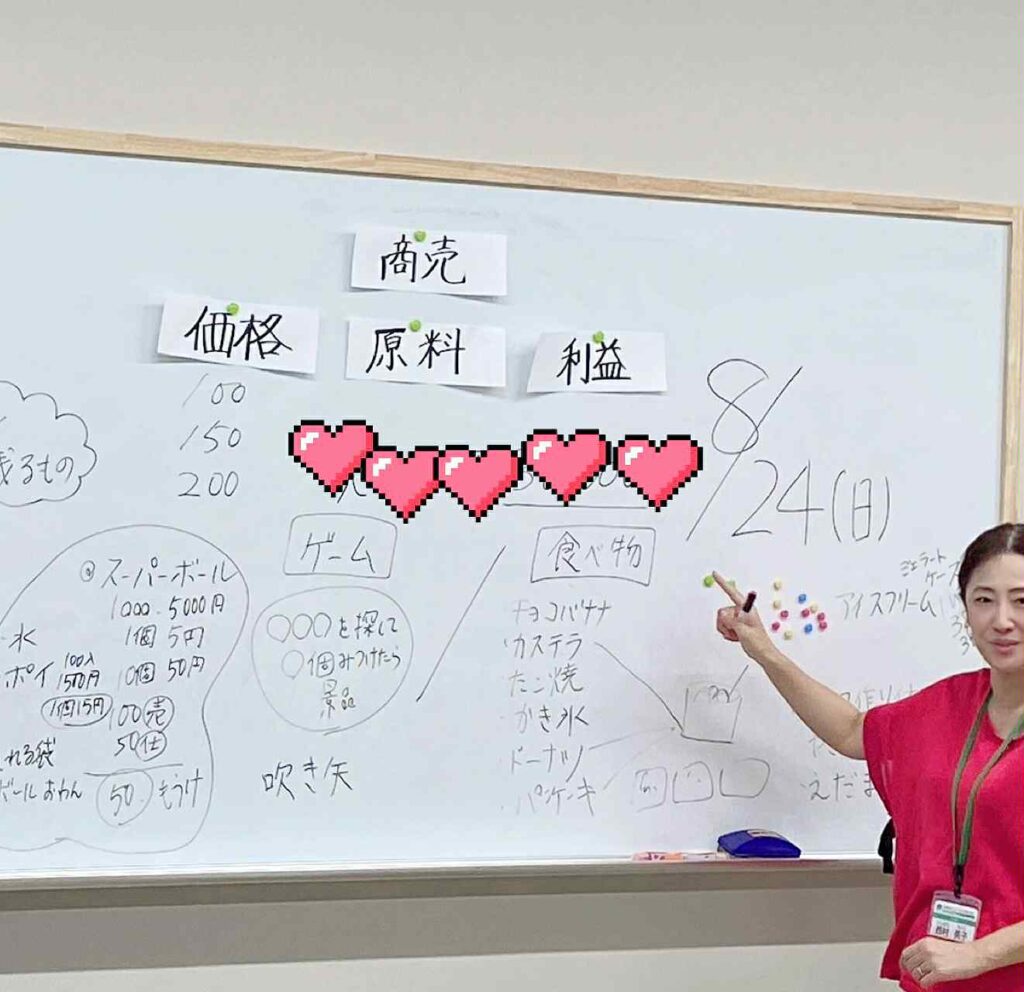 商売
価格
原料
利益
100
150
200
残るもの
8/24(日)
ゲーム
食べ物
@スーパーボール
1000.5000円
1個5円
10個50円
100売
50仕
50.もうけ
氷
ポイ 100入
1500円
1個15円
れる袋
ボール おわん
○○○を探して
○個みつけたら
景品
吹き矢
チョコバナナ
カステラ
たこ焼
かき氷
ドーナツ
パンケーキ
ジェラート
ケース
アイスクリーム
えだま